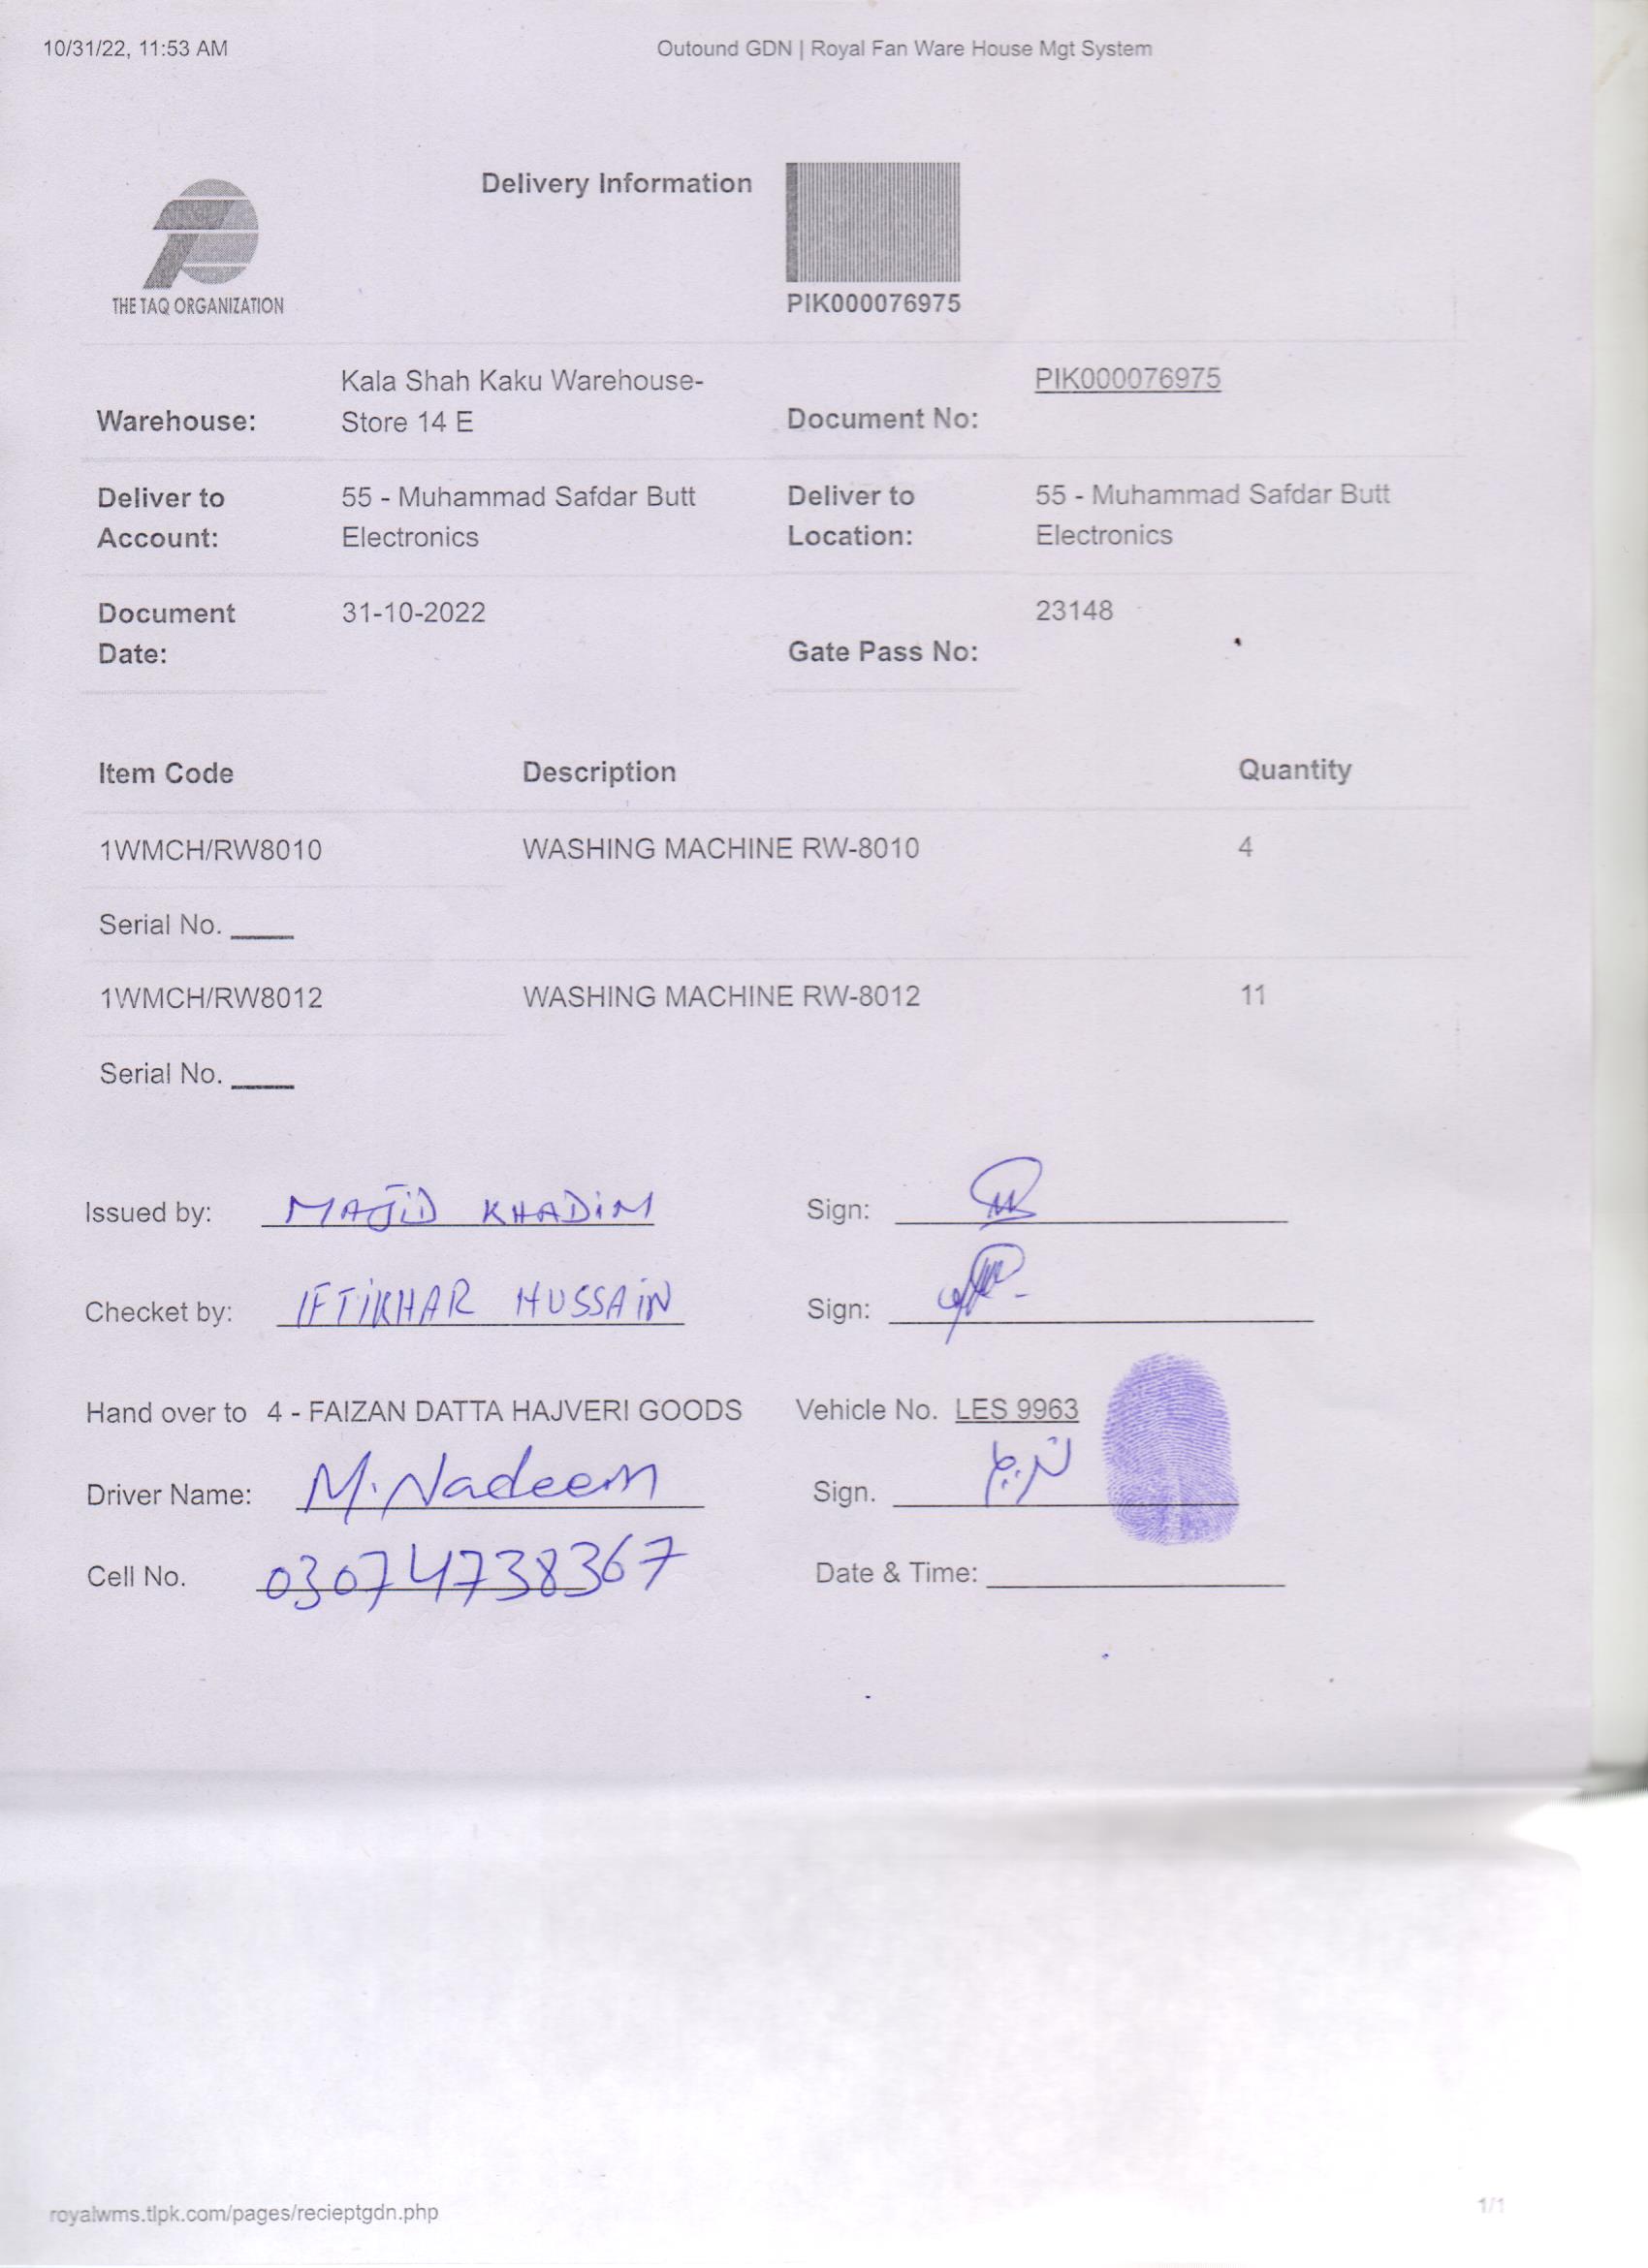 10/31/22, 11:53 AM
Outound GDN | Royal Fan Ware House Mgt System
Delivery Information
THE TAQ ORGANIZATION
PIK000076975
Warehouse: Kala Shah Kaku Warehouse-
Store 14 E
Document No: PIK000076975
Deliver to
Account: 55 - Muhammad Safdar Butt
Electronics
Deliver to
Location: 55 - Muhammad Safdar Butt
Electronics
Document
Date: 31-10-2022
Gate Pass No: 23148
Item Code Description Quantity
1WMCH/RW8010 WASHING MACHINE RW-8010 4
Serial No. ____
1WMCH/RW8012 WASHING MACHINE RW-8012 11
Serial No. ____
Issued by: MAJID KHADIM Sign:
Checket by: IFTIKHAR HUSSAIN Sign:
Hand over to 4 - FAIZAN DATTA HAJVERI GOODS Vehicle No. LES 9963
Driver Name: M. Nadeem Sign.
Cell No. 03074738367 Date & Time:
royalwms.tlpk.com/pages/recieptgdn.php
1/1